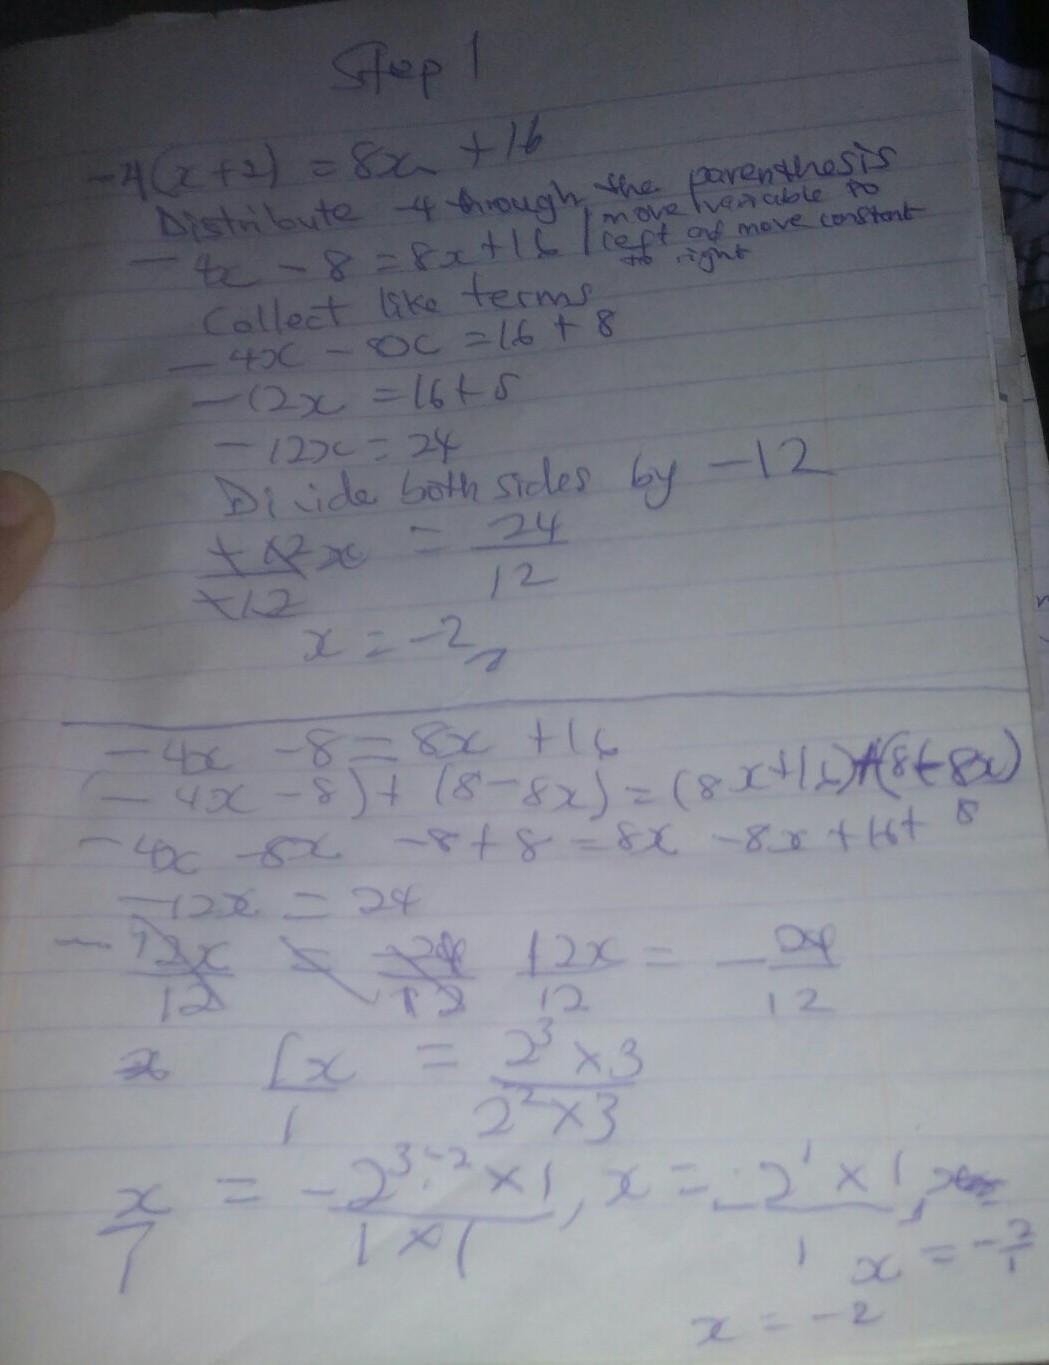 Step 1
-4(x+2) = 8x +16
Distribute -4 through the parenthesis
-4x - 8 = 8x+16 / move variable to
left and move constant
to right
Collect like terms
-4x - 8x = 16 + 8
-12x = 16+8
-12x = 24
Divide both sides by -12
-12x/-12 = 24/12
x = -2
-4x -8 = 8x +16
(-4x -8)+(8-8x) = (8x+16)+(8-8x)
-4x -8x -8+8 = 8x -8x+16+8
-12x = 24
-12x/12 = -24/12 12x/12 = -24/12
x 1x/1 = 2³×3/2²×3
x/1 = -2³⁻²×1/1×1, x = -2¹×1/1,
x = -2/1
x = -2